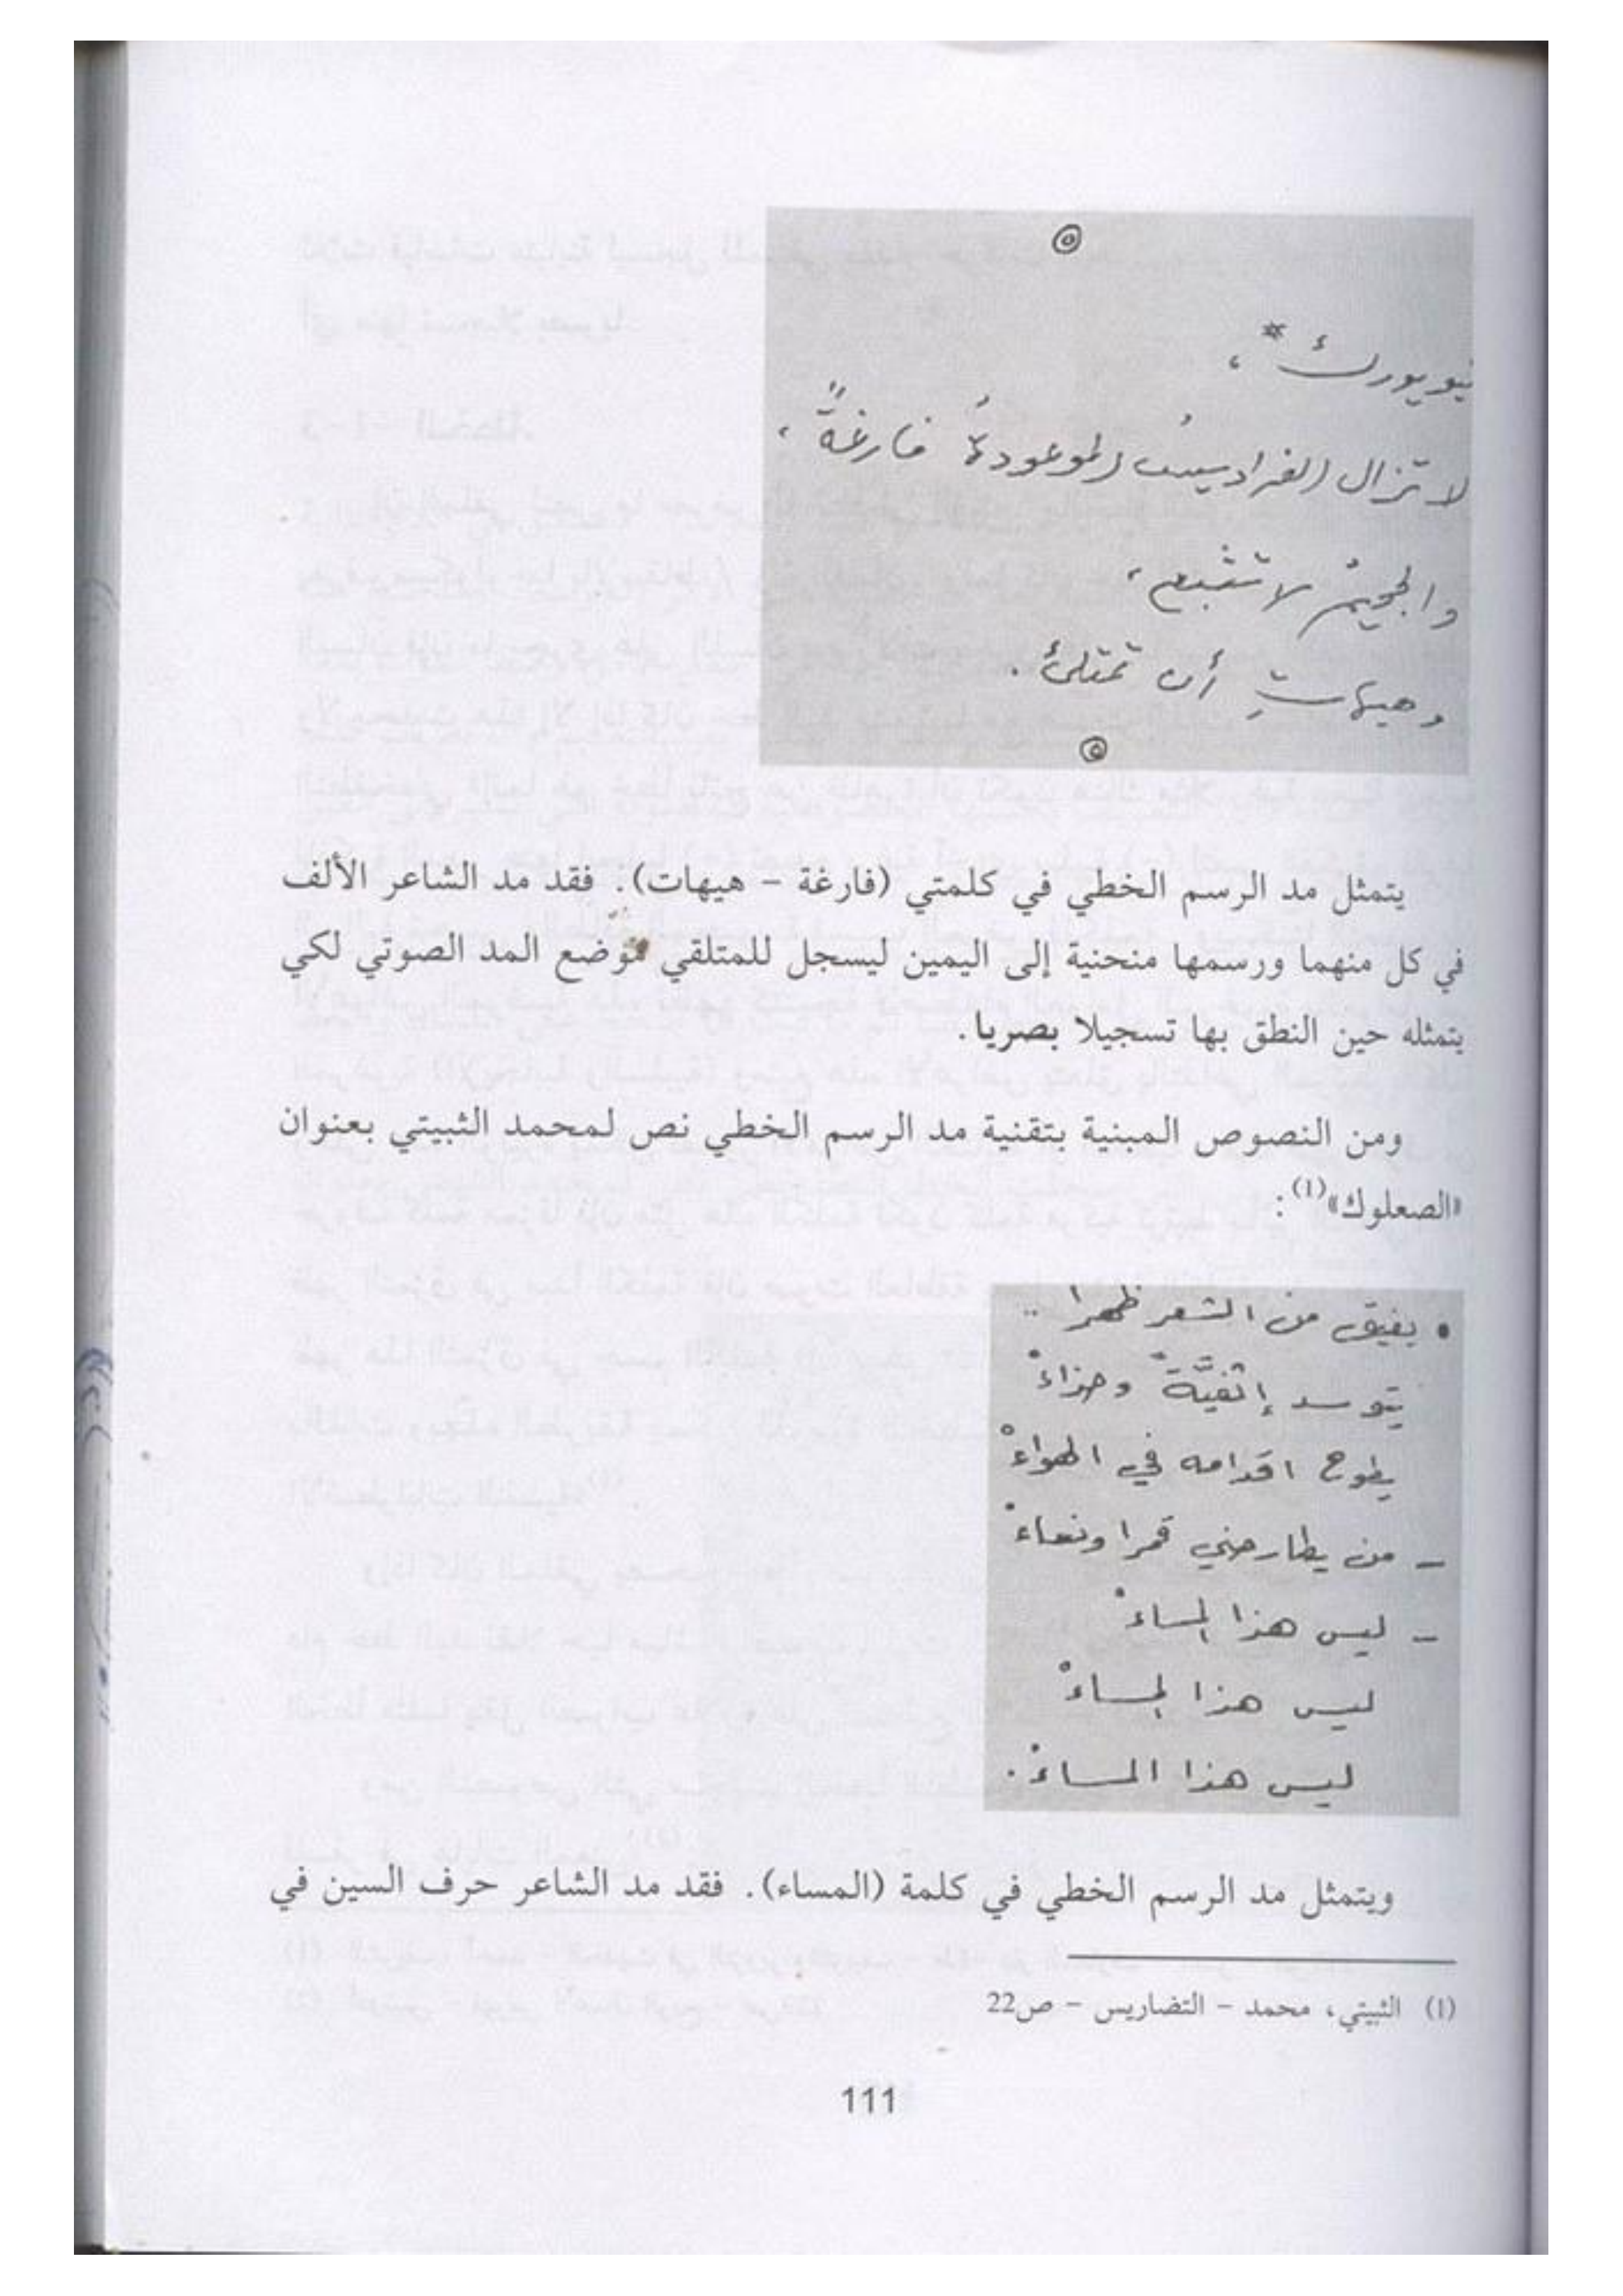 نيويورك*،
لا تزال الفراديسُ الموعودةُ فارغةً،
والجحيمُ لا تشبع،
وهيهاتِ أن تمتلئ.
يتمثل مد الرسم الخطي في كلمتي (فارغة - هيهات). فقد مد الشاعر الألف
في كل منهما ورسمها منحنية إلى اليمين ليسجل للمتلقي موضع المد الصوتي لكي
يتمثله حين النطق بها تسجيلا بصريا.
ومن النصوص المبنية بتقنية مد الرسم الخطي نص لمحمد الثبيتي بعنوان
«الصعلوك»(1):
• يفيق من الشعر ظهرا ..
يتوسد إثفيَّةً وحذاءْ
يطوح اقدامه في الهواءْ
- من يطارحني قمرا ونساءْ
- ليس هذا المساءْ
ليس هذا المساءْ
ليس هذا المساءْ.
ويتمثل مد الرسم الخطي في كلمة (المساء). فقد مد الشاعر حرف السين في
(1) الثبيتي، محمد - التضاريس - ص22
111